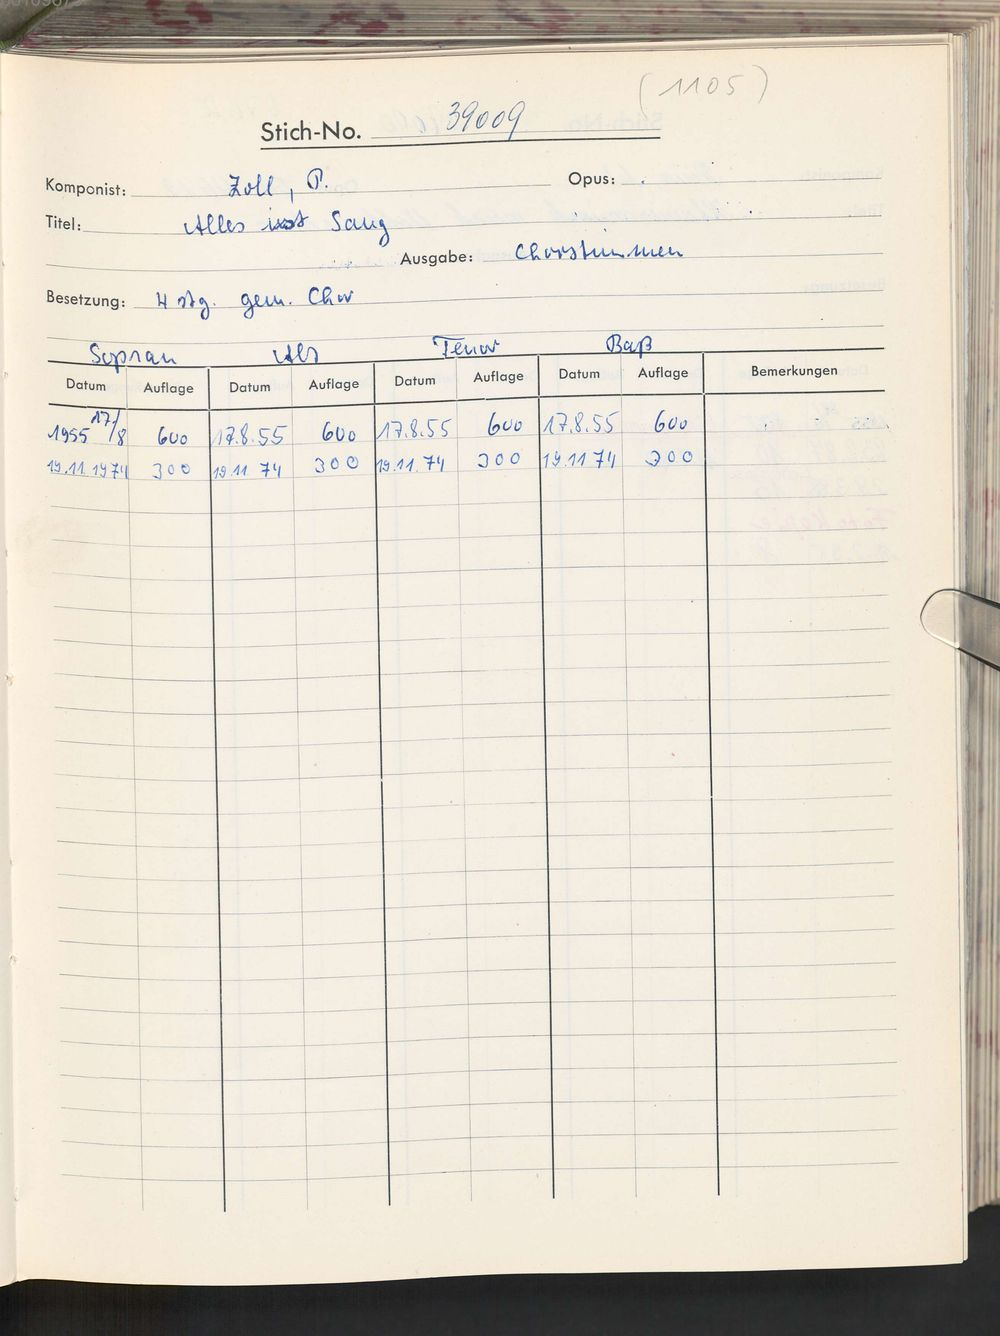 (1105)
Stich-No. 39009
Komponist: Zoll, P. Opus:
Titel: Alles ist Sang
Ausgabe: Chorstimmen
Besetzung: 4 stg. gem. Chor
Sopran Alt Tenor Baß
Datum Auflage Datum Auflage Datum Auflage Datum Auflage Bemerkungen
1955 17/8 600 17.8.55 600 17.8.55 600 17.8.55 600
19.11.1974 300 19.11 74 300 19.11.74 300 19.11 74 300